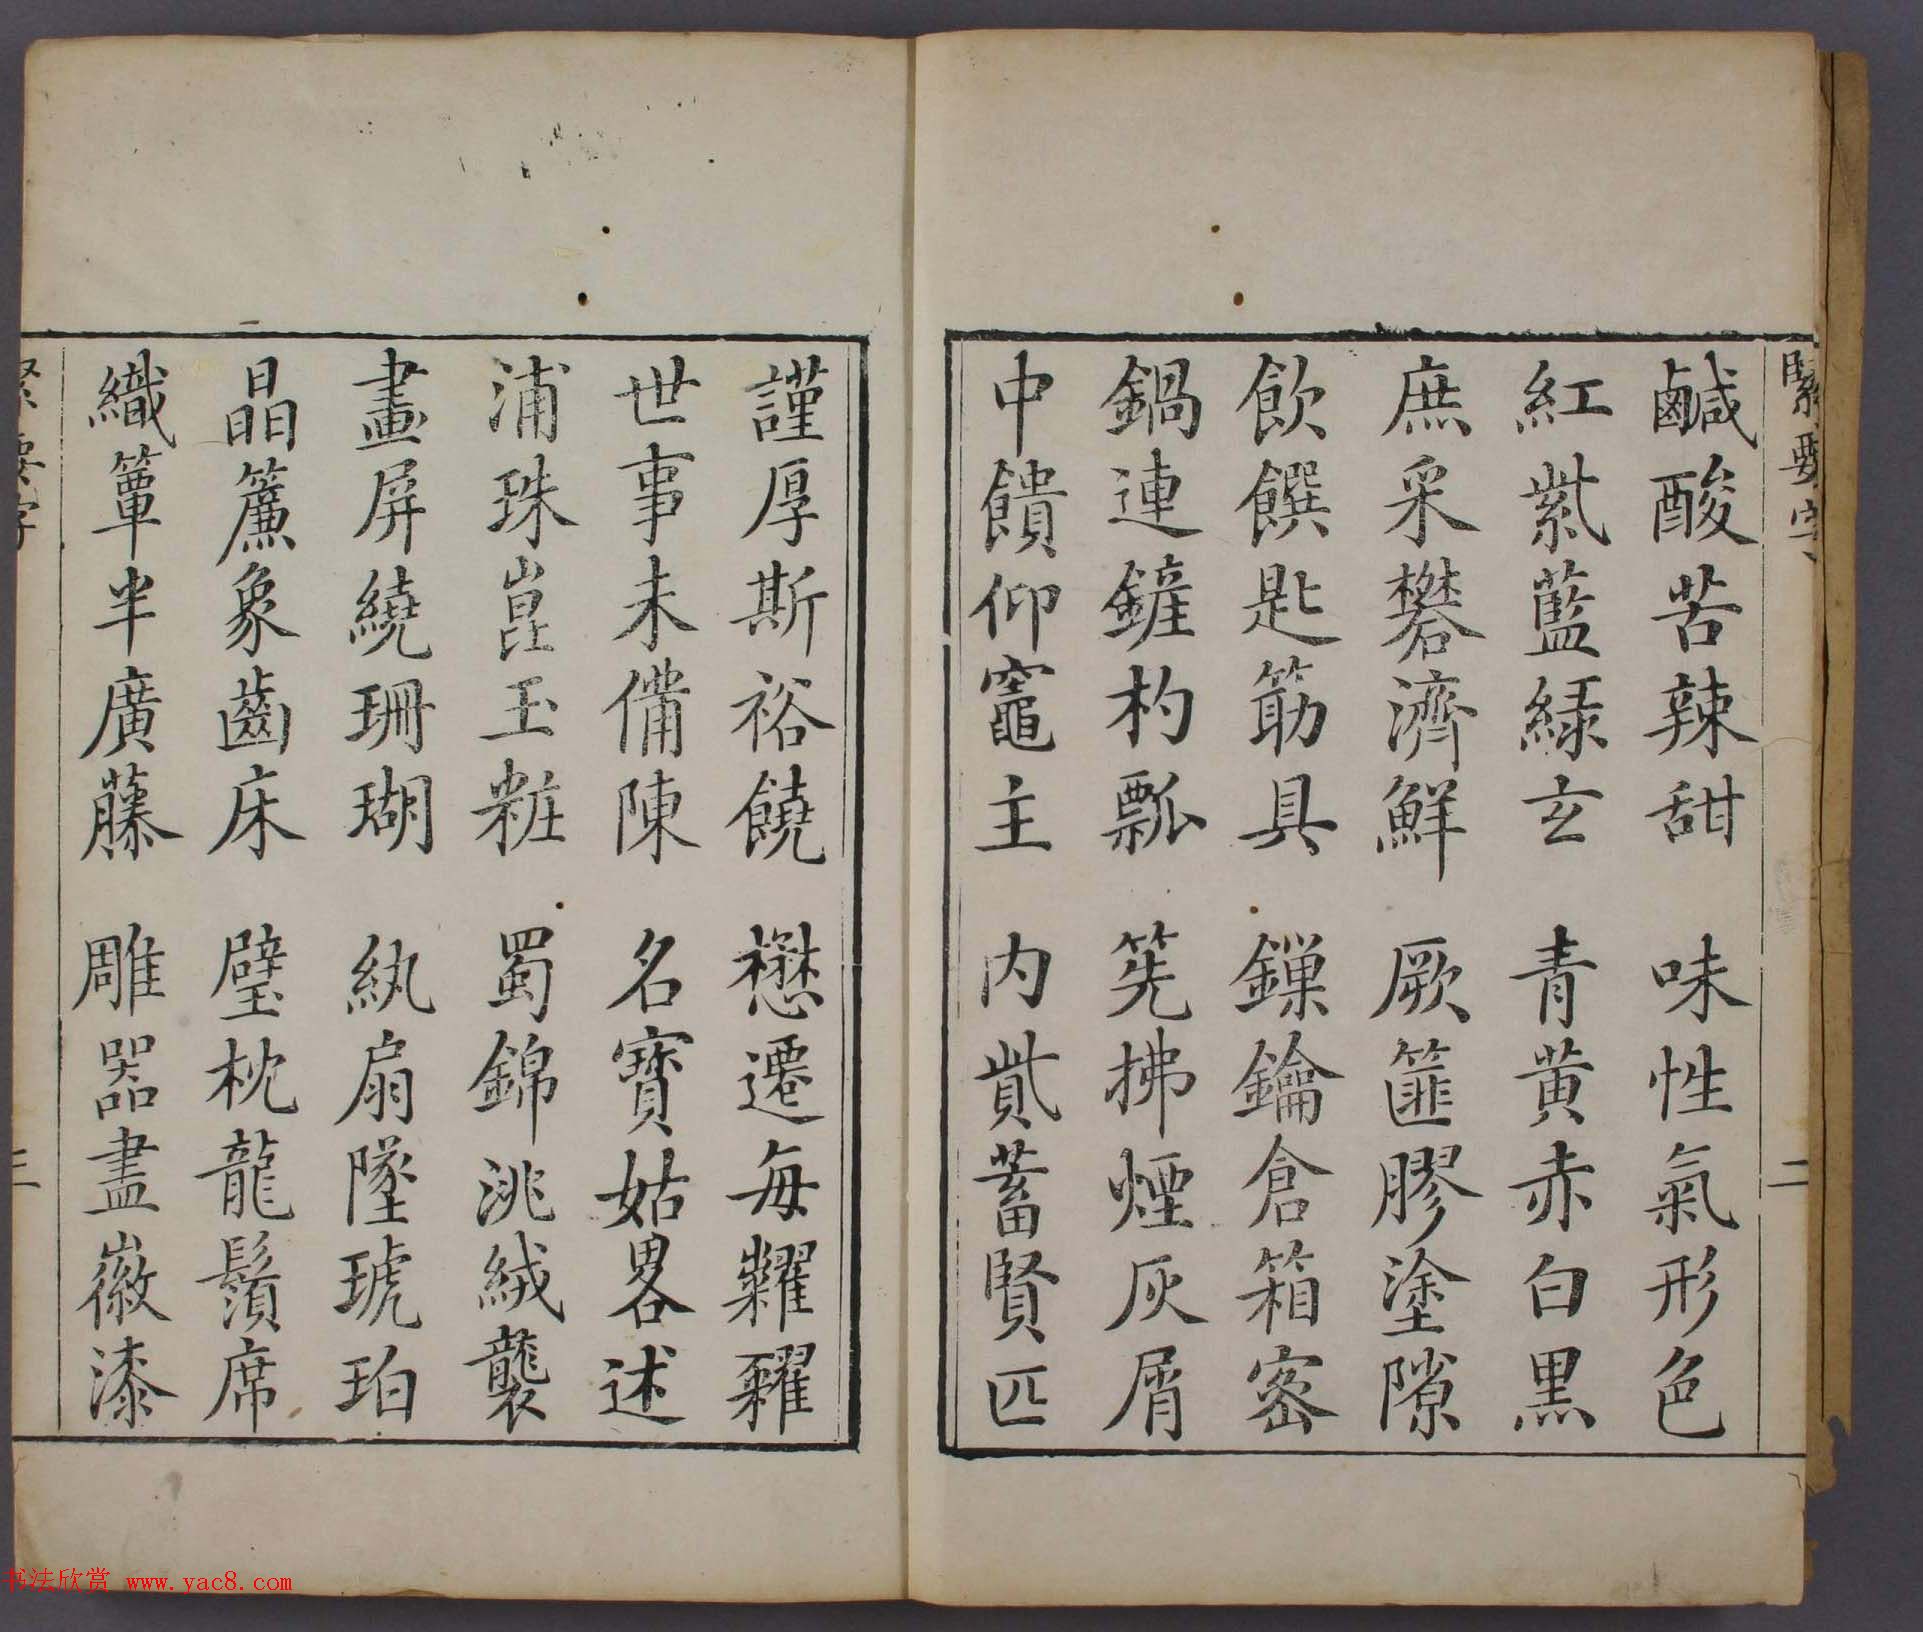 緊要字
二
鹹酸苦辣甜 味性氣形色
紅紫藍綠玄 青黃赤白黑
庶采礬濟鮮 厥篚膠塗隙
飲饌匙筯具 鏁鑰倉箱密
鍋連鏟杓瓢 筅拂煙灰屑
中饋仰竈主 內貲蓄賢匹
謹厚斯裕饒 懋遷每糶糴
世事未俻陳 名寶姑畧述
浦珠崑玉粧 蜀錦洮絨襲
畫屏繞珊瑚 紈扇墜琥珀
晶簾象齒床 璧枕龍鬚席
織簟半廣藤 雕器盡徽漆
緊要字
三
书法欣赏 www.yac8.com